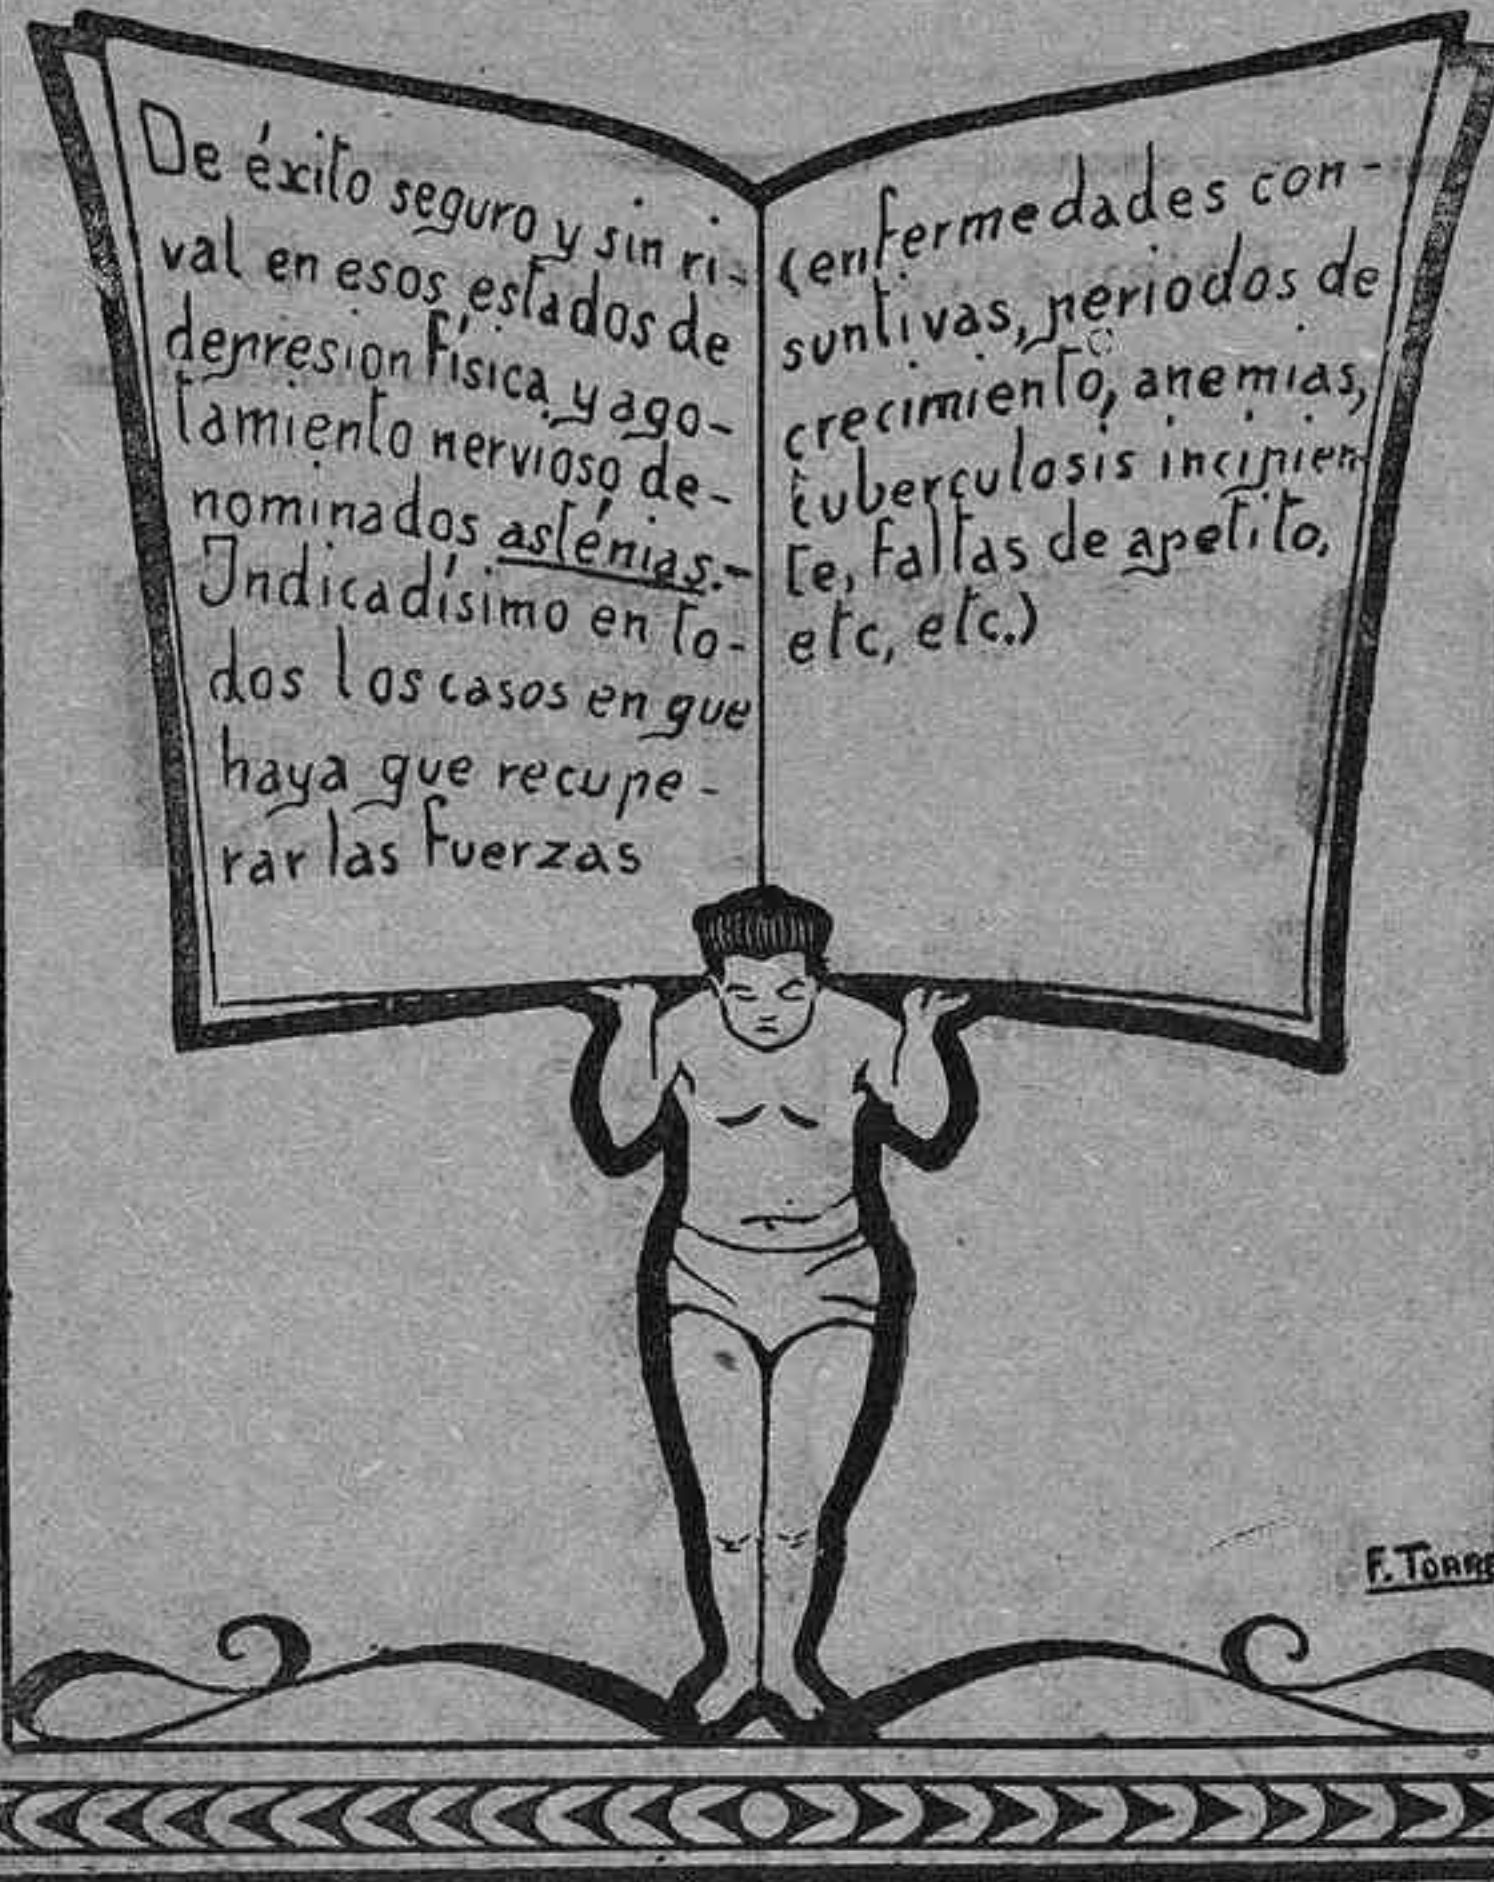 De éxito seguro y sin ri-
val en esos estados de
depresion física y ago-
tamiento nervioso de-
nominados asténias.-
Indicadísimo en to-
dos los casos en que
haya que recupe-
rar las fuerzas
(enfermedades con-
suntivas, periodos de
crecimiento, anemias,
tuberculosis incipien-
te, faltas de apetito,
etc, etc.)
F. TORRE